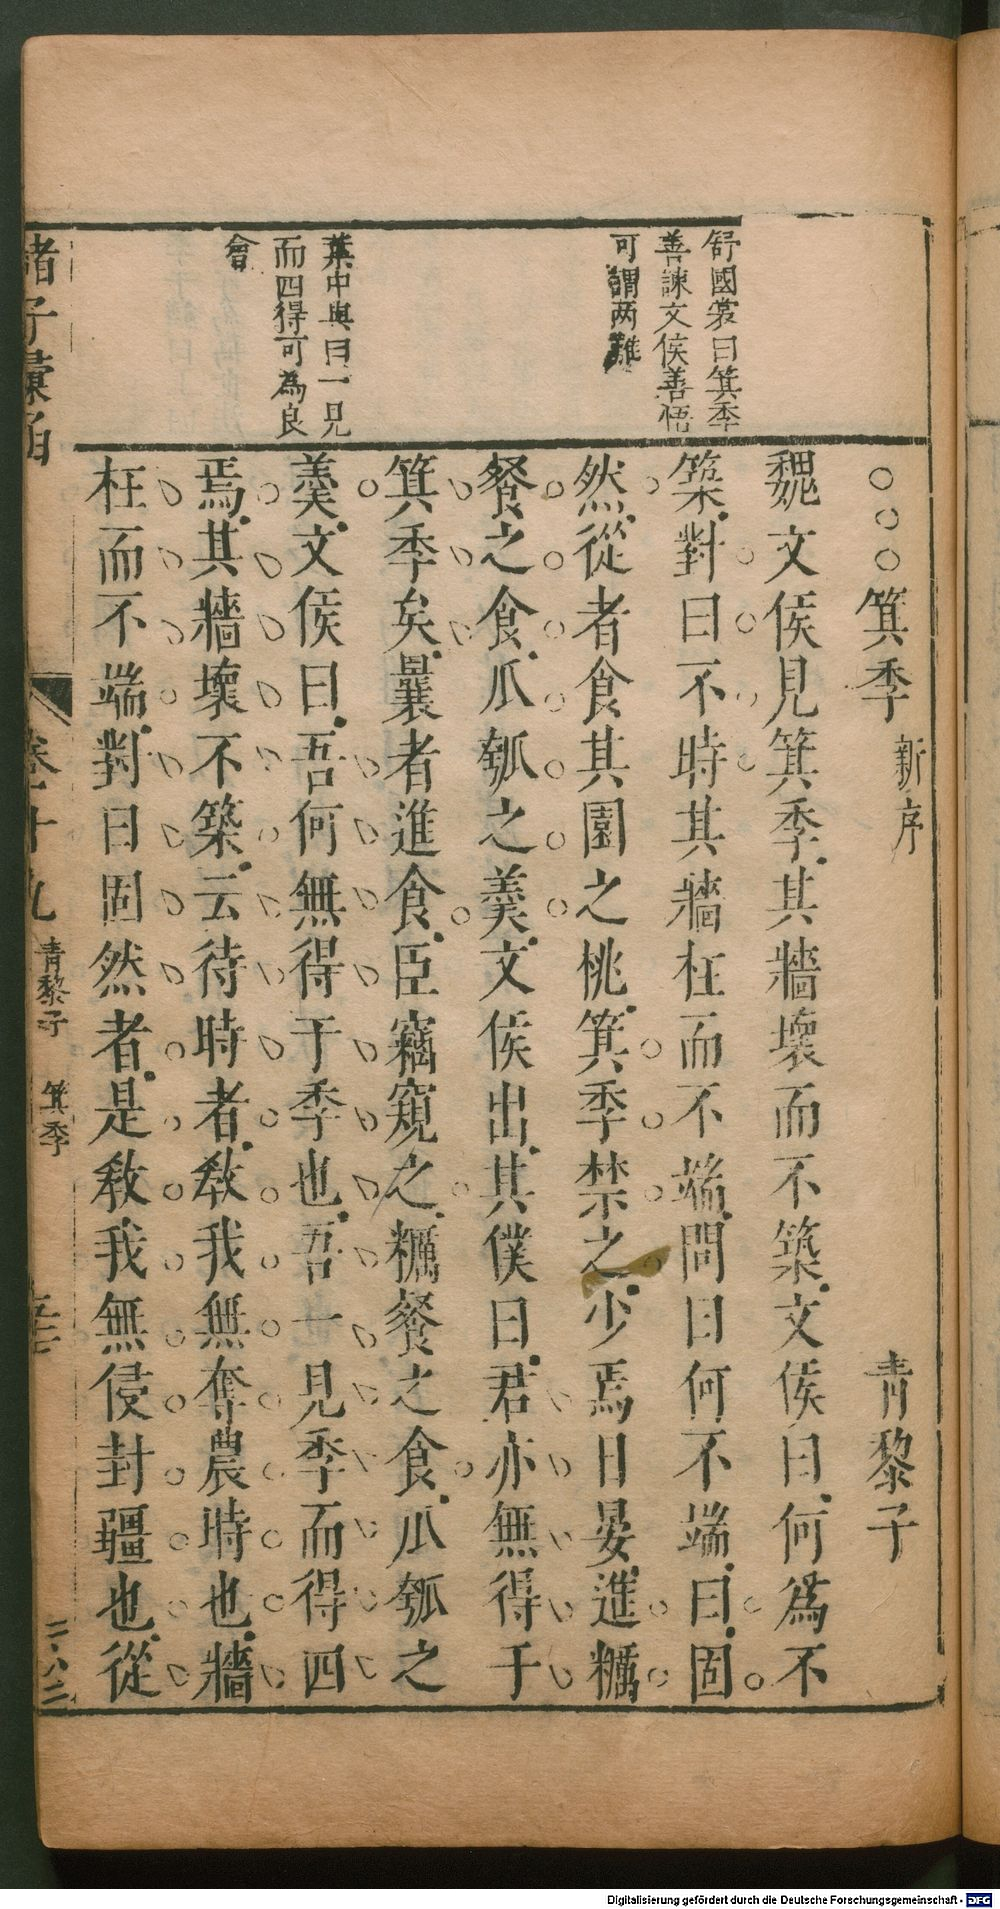 舒國裳曰箕季
善諫文侯善悟
可謂两難
葉中與曰一見
而四得可為良
會
○○○箕季 新序 青黎子
魏文侯見箕季其牆壞而不築文侯曰何爲不
築對曰不時其牆枉而不端問曰何不端曰固
然從者食其園之桃箕季禁之少焉日晏進糲
餐之食瓜瓠之羹文侯出其僕曰君亦無得于
箕季矣曩者進食臣竊窺之糲餐之食瓜瓠之
羹文侯曰吾何無得于季也吾一見季而得四
焉其牆壞不築云待時者教我無奪農時也牆
枉而不端對曰固然者是教我無侵封疆也從
諸子彙函 卷十九 青黎子 箕季
Digitalisierung gefördert durch die Deutsche Forschungsgemeinschaft - DFG